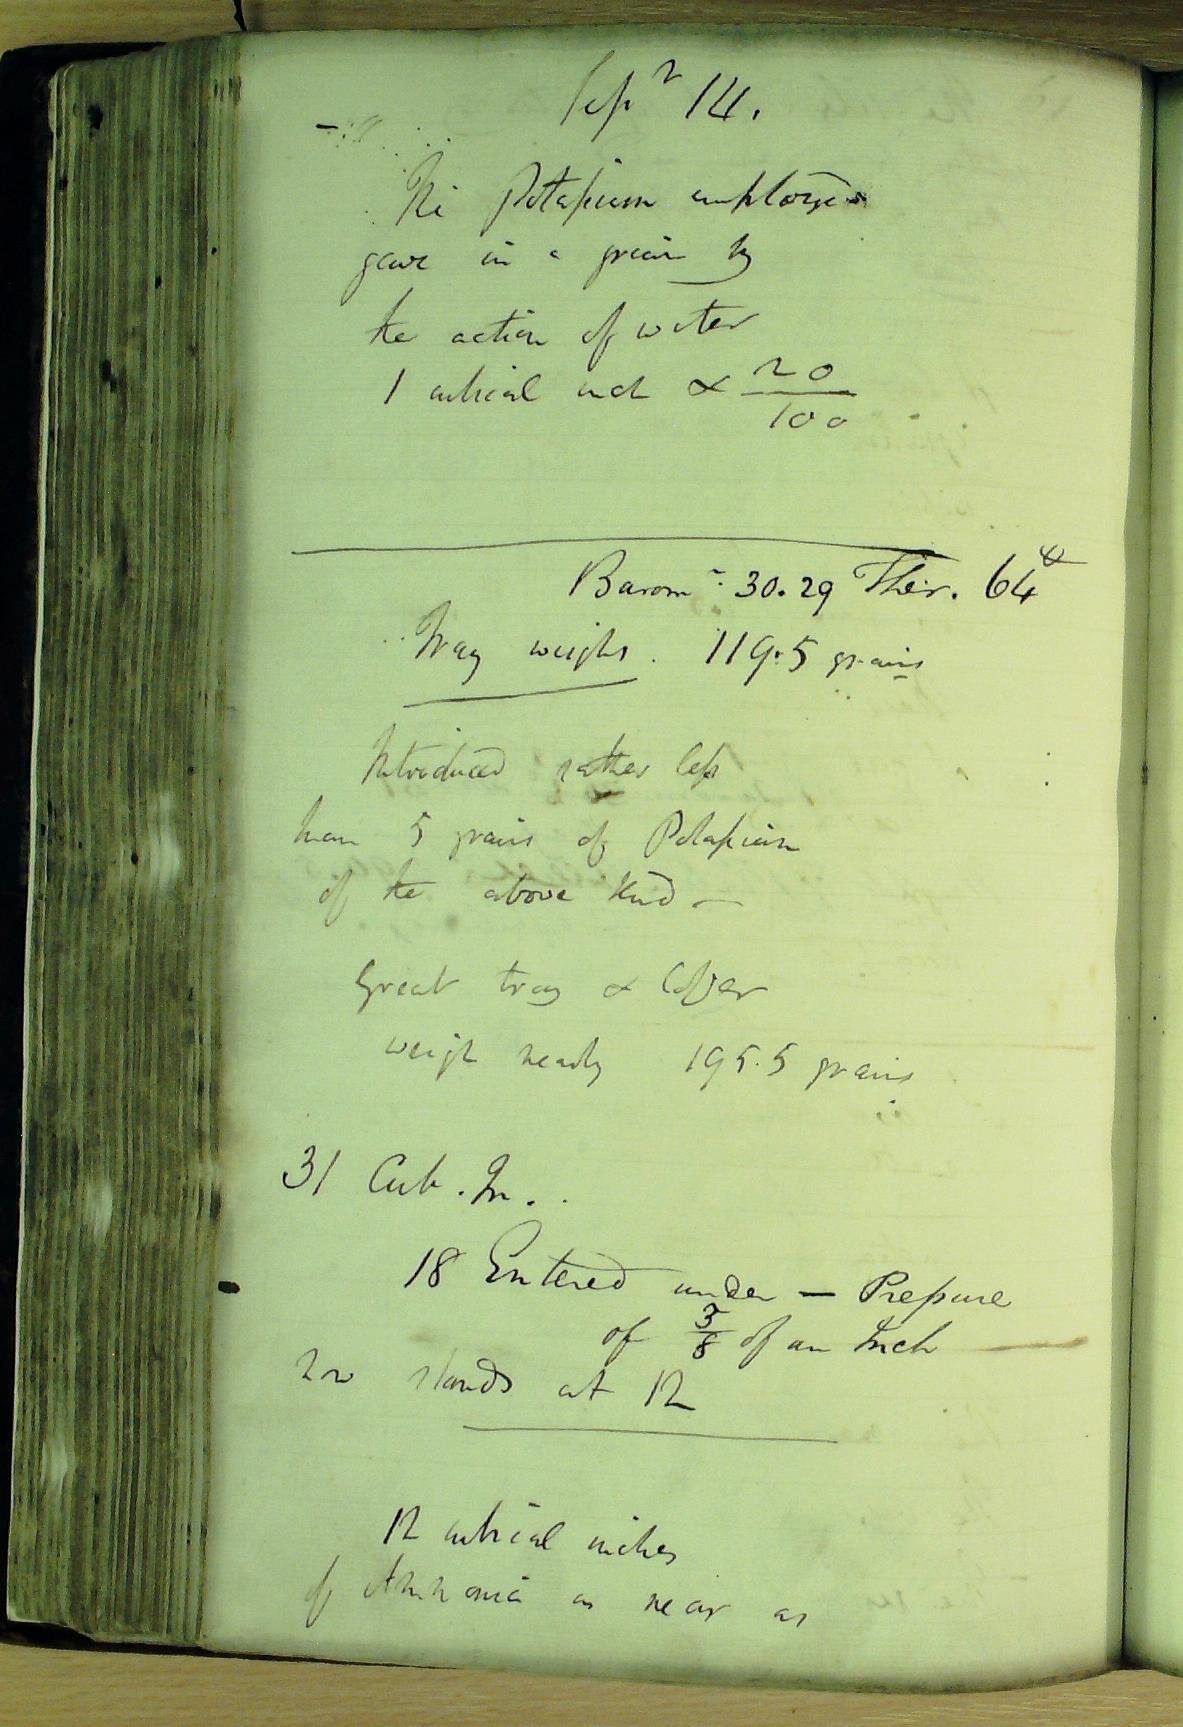 Sepr 14.
The Potassium employed
gave in a grain by
the action of water
1 cubical inch & 20/100
Baromr. 30.29 Ther. 64
Tray weighs. 119.5 grains
Introduced rather less
than 5 grains of Potassium
of the above Kind —
Great tray & Cover
weigh nearly 195.5 grains
31 Cub. In.
18 Entered under — Pressure
of 3/8 of an Inch
stands at 12
12 cubical inches
of Ammonia as near as